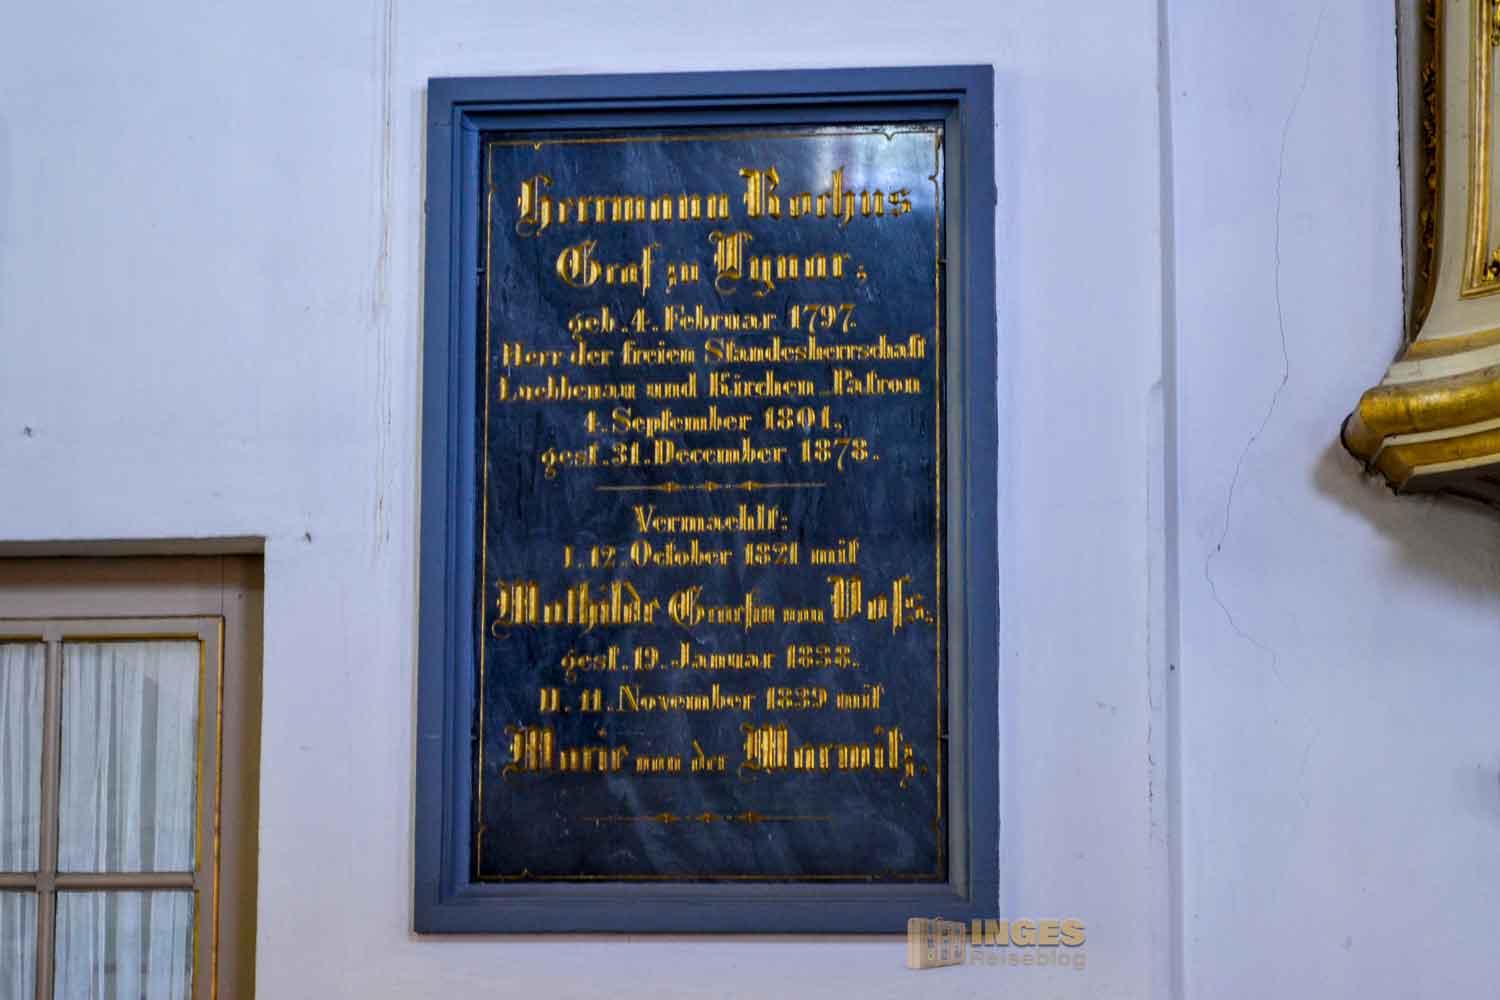 Herrmann Rochus
Graf zu Lynar,
geb. 4. Februar 1797.
Herr der freien Standesherrschaft
Luebbenau und Kirchen-Patron
4. September 1801,
gest. 31. December 1878.
Vermaehlt:
I. 12. October 1821 mit
Mathilde Graefin von Voss,
gest. 19. Januar 1838.
II. 11. November 1839 mit
Marie von der Marwitz.
INGES
Reiseblog